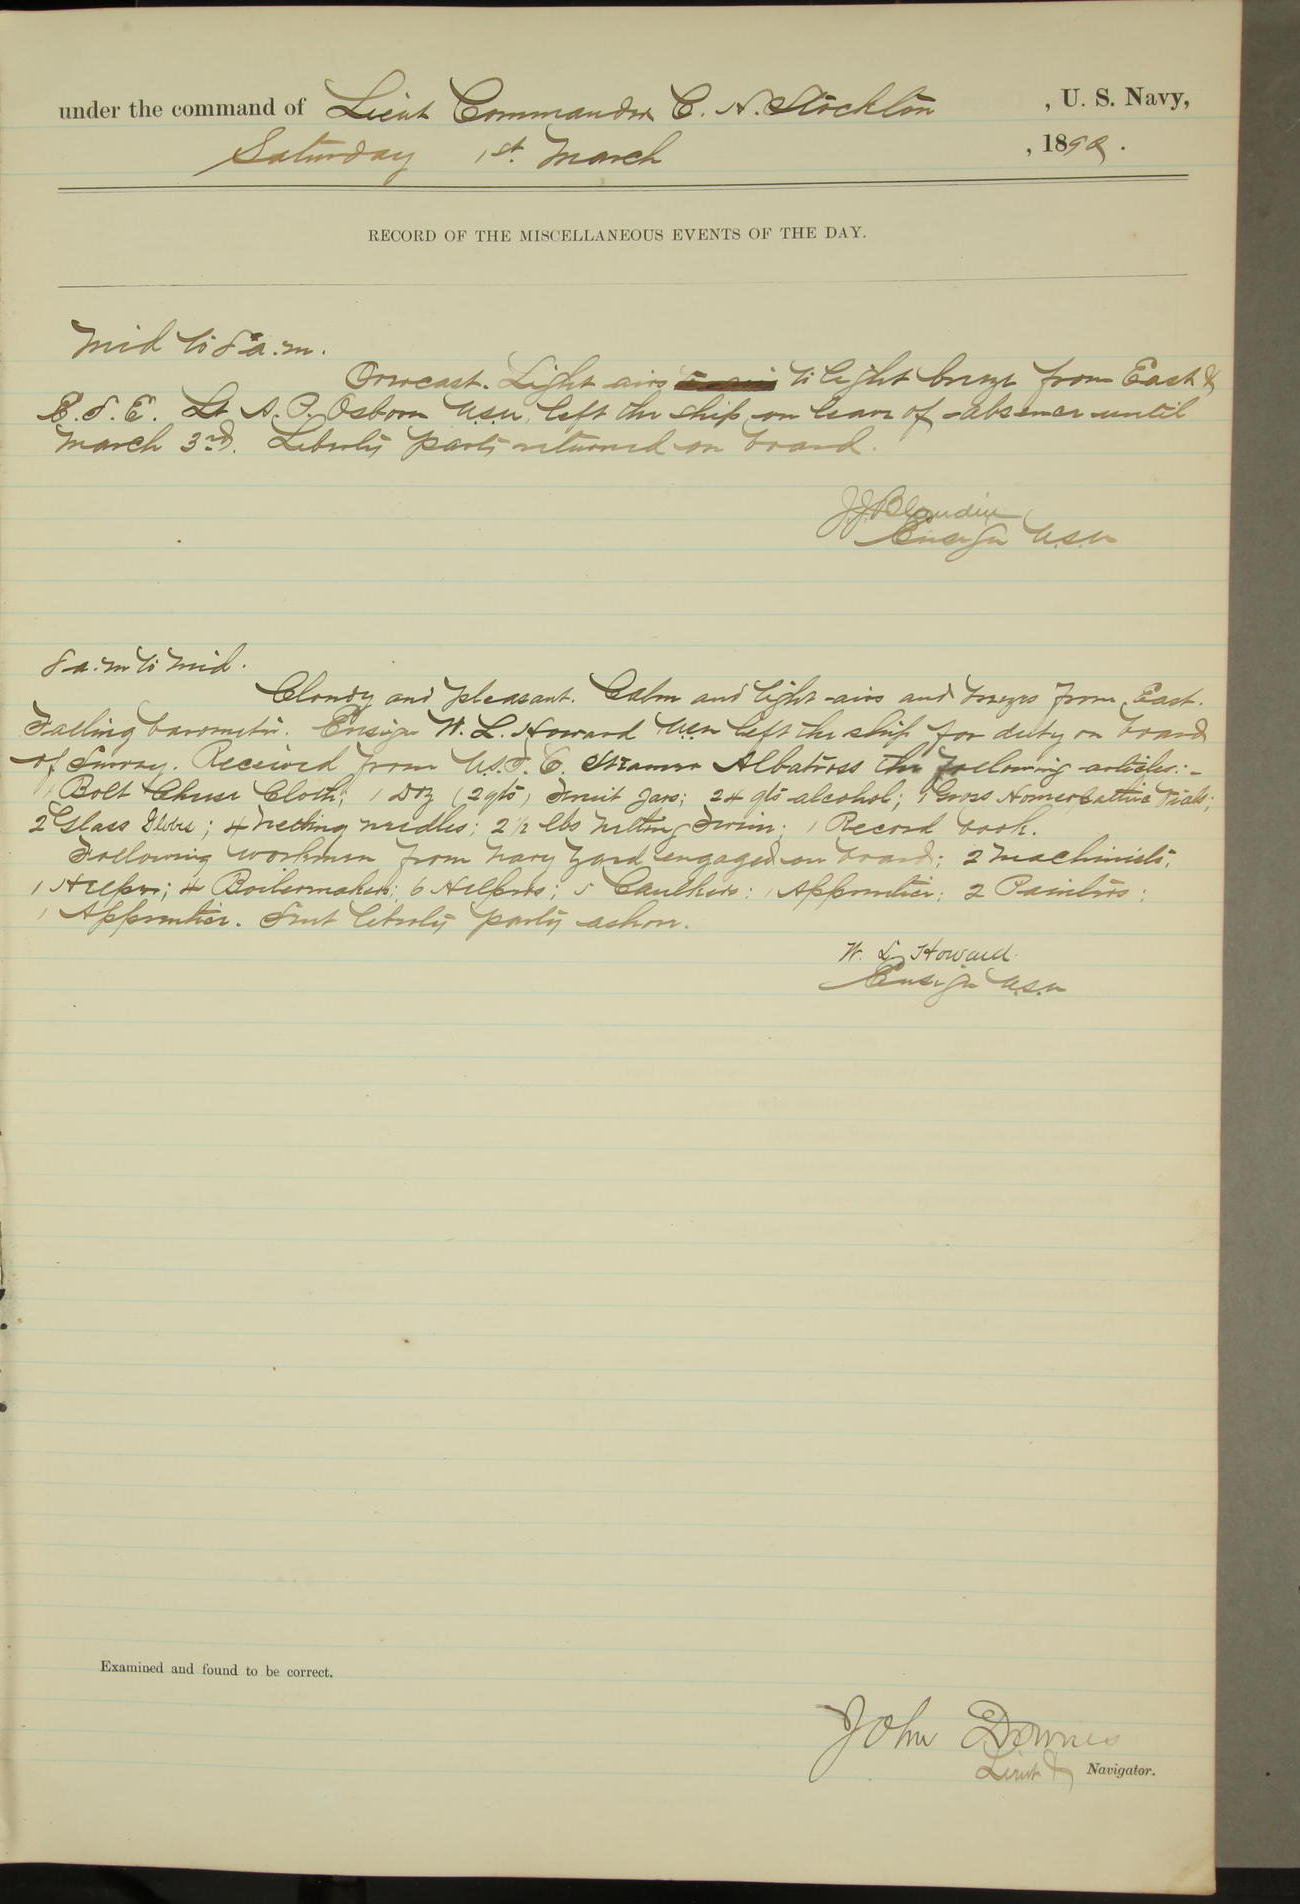 under the command of Lieut Commander C. H. Stockton, U. S. Navy,
Saturday 1st March, 1890.
RECORD OF THE MISCELLANEOUS EVENTS OF THE DAY.
Mid to 8 a.m.
Overcast. Light airs to light breeze from East &
E.S.E. Lt A. P. Osborn U.S.N. left the ship on leave of absence until
March 3rd. Liberty party returned on board.
J.J. Blandin
Ensign U.S.N
8 a.m to Mid.
Cloudy and pleasant. Calm and light airs and breezes from East.
Falling barometer. Ensign W. L. Howard USN left the ship for duty on board
of Survey. Received from U.S.F.C. Steamer Albatross the following articles:-
1 Bolt Cheese Cloth; 1 Doz (2 qts) Fruit Jars; 24 qts alcohol; 1 Gross Homeopathic Vials;
2 Glass Globes; 4 Netting needles; 2 1/2 lbs netting Twine; 1 Record book.
Following workmen from Navy Yard engaged on board: 2 Machinists;
1 Helper; 4 Boilermakers; 6 Helpers; 5 Caulkers; 1 Apprentice; 2 Painters;
1 Apprentice. Sent liberty party ashore.
W. L. Howard.
Ensign U.S.N
Examined and found to be correct.
John Downes
Lieut & Navigator.